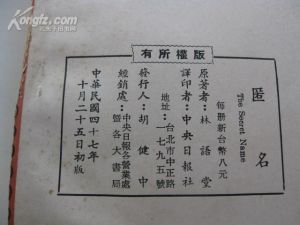 Kongfz.com
版權所有
匿名
The Secret Name
每冊新台幣八元
原著者：林語堂
譯印者：中央日報社
地址：台北市中正路
一七九五號
發行人：胡健中
經銷處：中央日報各營業處
暨各大書局
中華民國四十七年
十月二十五日初版